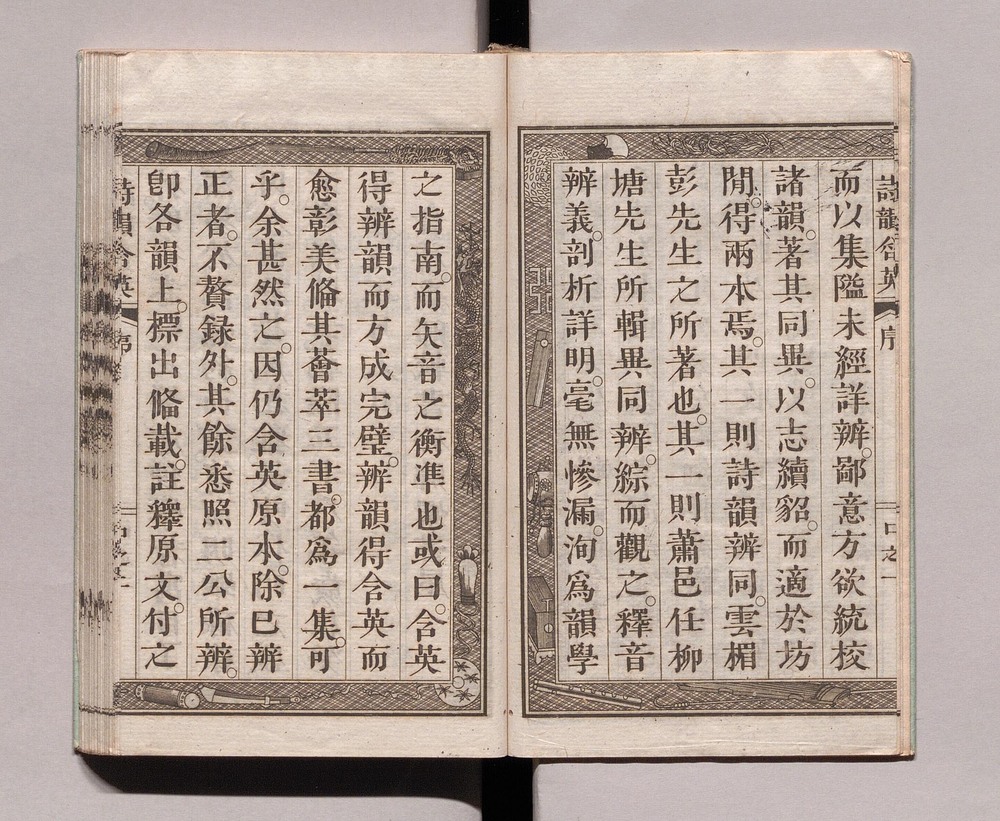 詩韻含英 序
而以集隘未經詳辨鄙意方欲統校
諸韻。著其同異。以志續貂。而適於坊
閒。得兩本焉。其一則詩韻辨同。雲楣
彭先生之所著也。其一則蕭邑任柳
塘先生所輯異同辨。綜而觀之。釋音
辨義。剖析詳明。毫無慘漏。洵爲韻學
之指南。而矢音之衡準也或曰。含英
得辨韻而方成完璧。辨韻得含英而
愈彰美備其薈萃三書。都爲一集。可
乎。余甚然之。因仍含英原本。除已辨
正者。不贅録外。其餘悉照二公所辨。
卽各韻上。標出備載。註釋原文。付之
詩韻含英 序